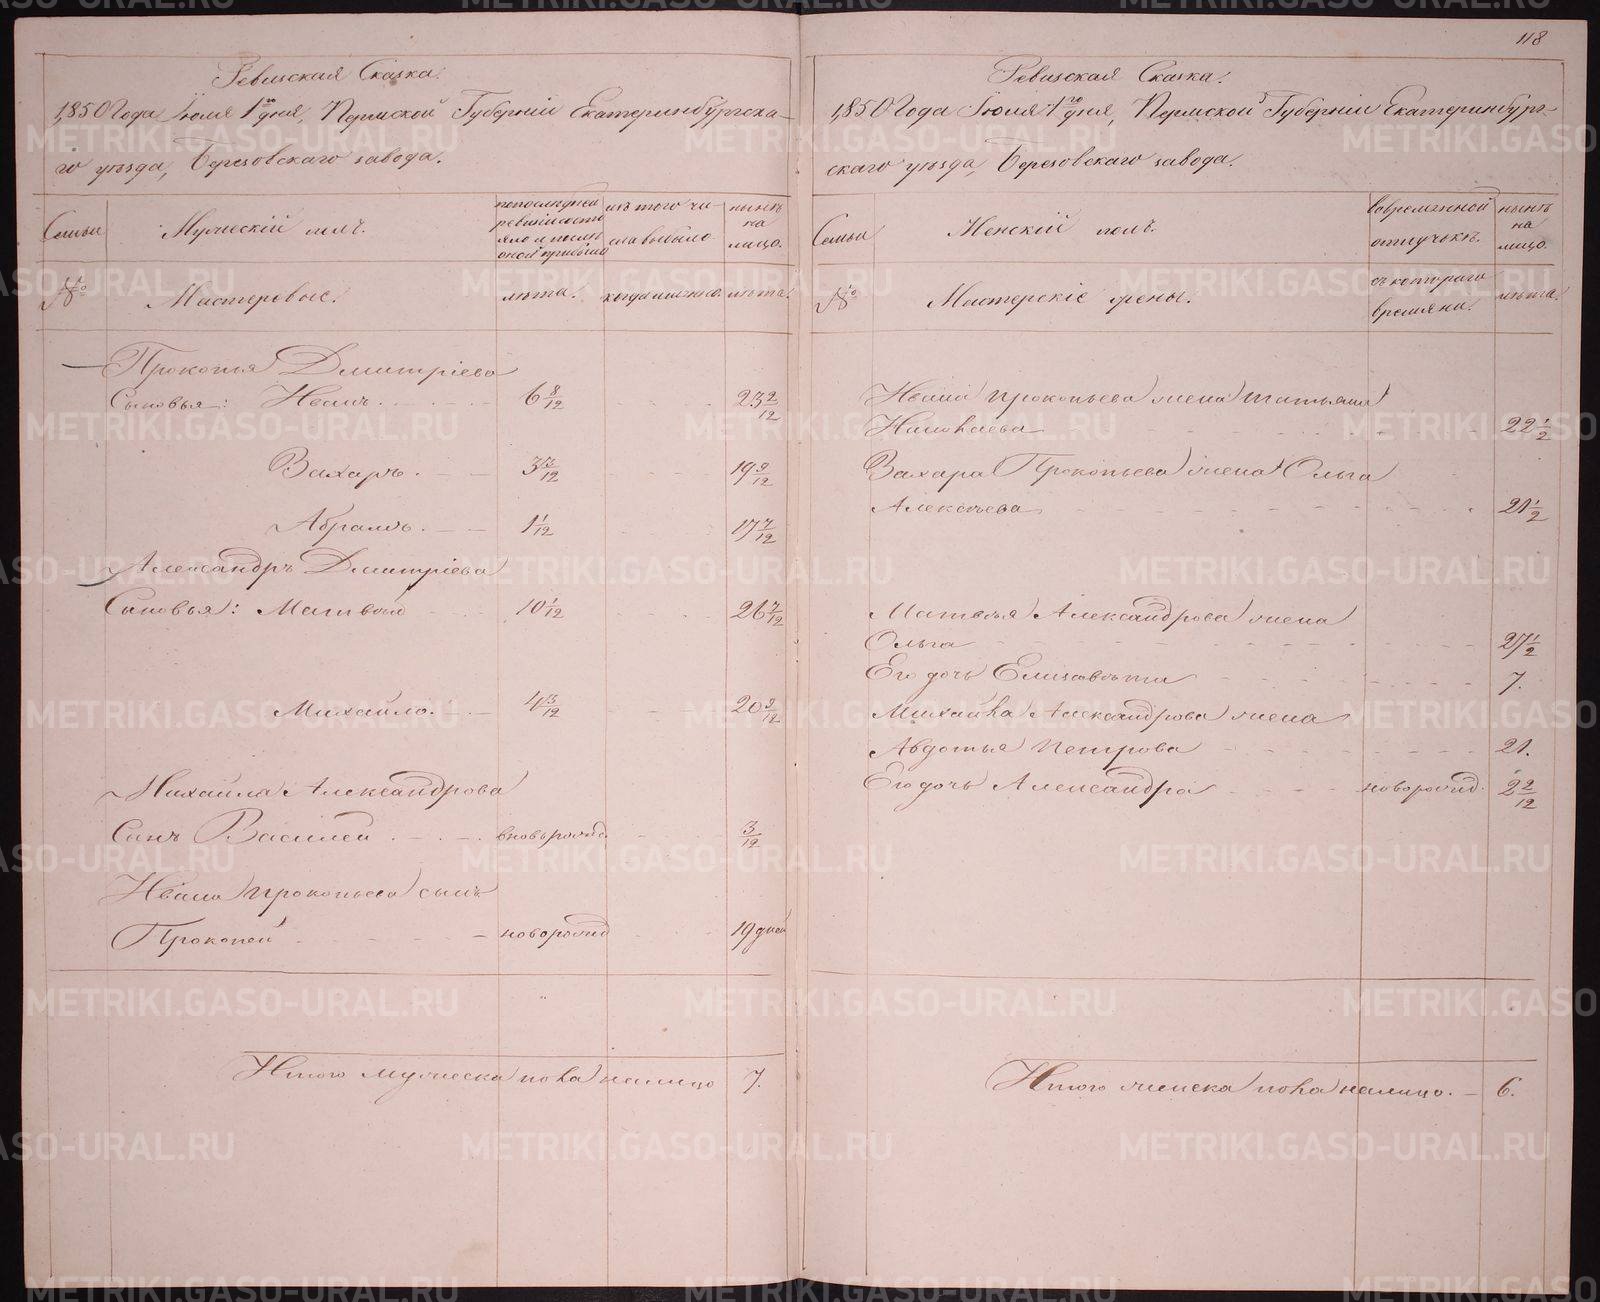 118
Ревизская Сказка.
1850 Года Июля 1го дня, Пермской Губерніи Екатеринбургска-
го уѣзда, Березовскаго завода.
Семьи
Мужескій полъ.
по последней
ревизіи состо
яло и послѣ
оной прибыло
изъ того чи-
сла выбыло
нынѣ
на
лицо.
№
Мастеровые.
лѣта.
когда именно.
лѣта.
Прокопья Дмитріева
Сыновья: Иванъ. 6 8/12 23 2/12
Захаръ. 3 3/12 19 9/12
Абрамъ. 1 1/12 17 7/12
Александръ Дмитріева
Сыновья: Матвѣй 10 1/12 26 7/12
Михайло. 4 3/12 20 9/12
Михайла Александрова
Сынъ Василей вновьрожд. 3/12
Ивана Прокопьева сынъ
Прокопей новорожд 19 дней
Итого мужеска пола налицо 7.
Ревизская Сказка.
1850 Года Июля 1го дня, Пермской Губерніи Екатеринбург-
скаго уѣзда, Березовскаго завода.
Семьи
Женскій полъ.
вовременной
отлучькѣ.
нынѣ
на
лицо.
№
Мастерскіе жены.
съ котораго
времяни.
лѣта.
Ивана Прокопьева жена Татьяна
Николаева 22 1/2
Захара Прокопьева жена Ольга
Алексѣева 21 1/2
Матвѣя Александрова жена
Ольга 27 1/2
Его дочь Елизавѣта 7.
Михайла Александрова жена
Авдотья Петрова 21.
Его дочь Александра новорожд. 2 2/12
Итого женска пола налицо. 6.
METRIKI.GASO-URAL.RU